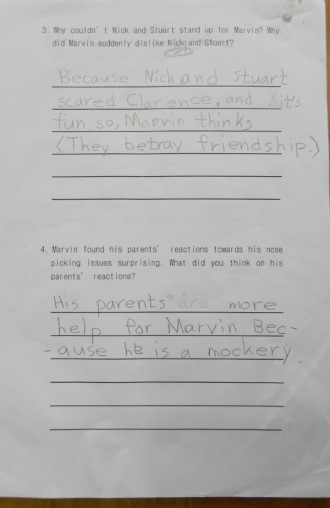 3. Why couldn't Nick and Stuart stand up for Marvin? Why
did Marvin suddenly dislike Nick and Stuart?
Because Nick and Stuart
scared Clarence, and it's
fun, so, Marvin thinks
(They betray friendship.)
4. Marvin found his parents' reactions towards his nose
picking issues surprising. What did you think on his
parents' reactions?
His parents are more
help for Marvin. Bec-
-ause he is a mockery.